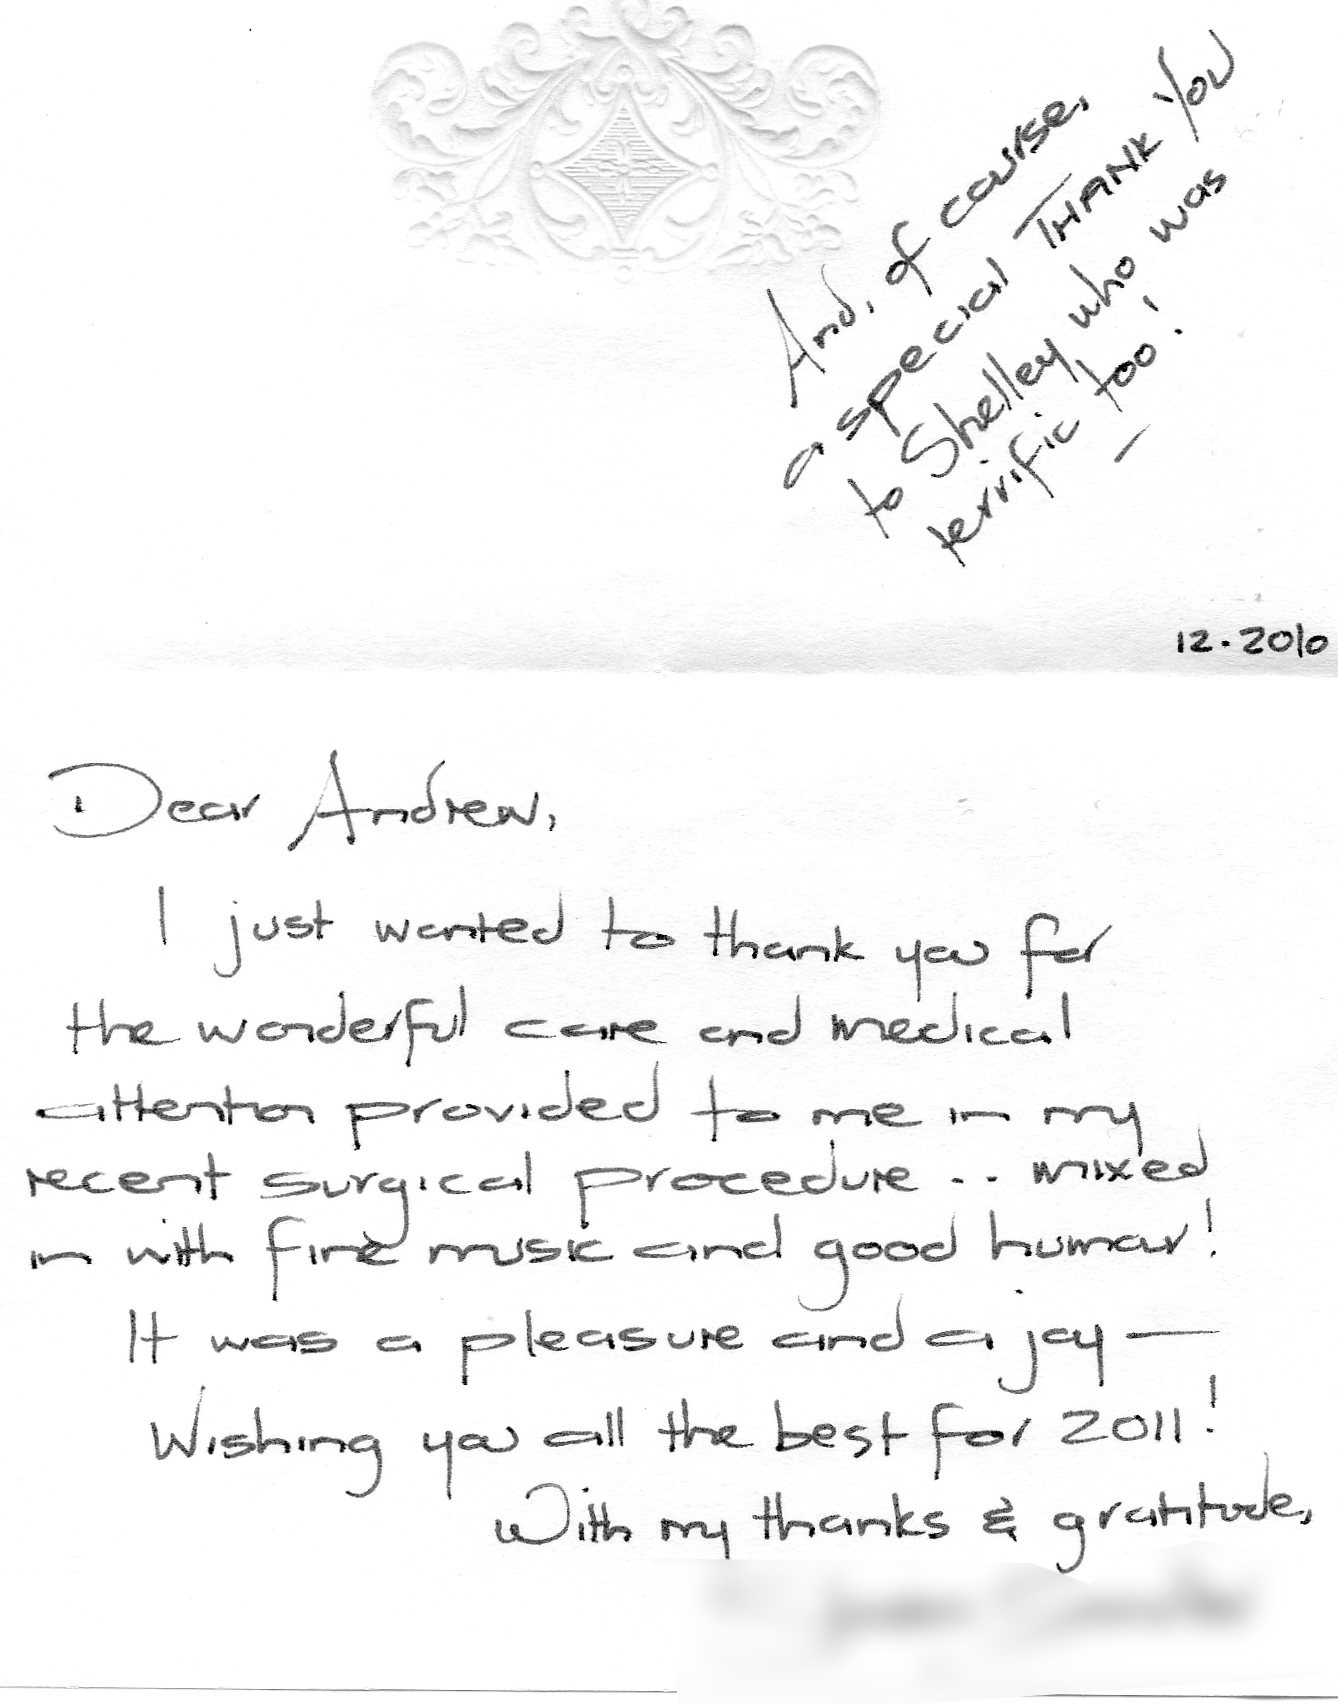 And, of course,
a special THANK YOU
to Shelley who was
terrific too!
12.2010
Dear Andrew,
I just wanted to thank you for
the wonderful care and medical
attention provided to me in my
recent surgical procedure .. mixed
in with fine music and good humor!
It was a pleasure and a joy —
Wishing you all the best for 2011!
With my thanks & gratitude,